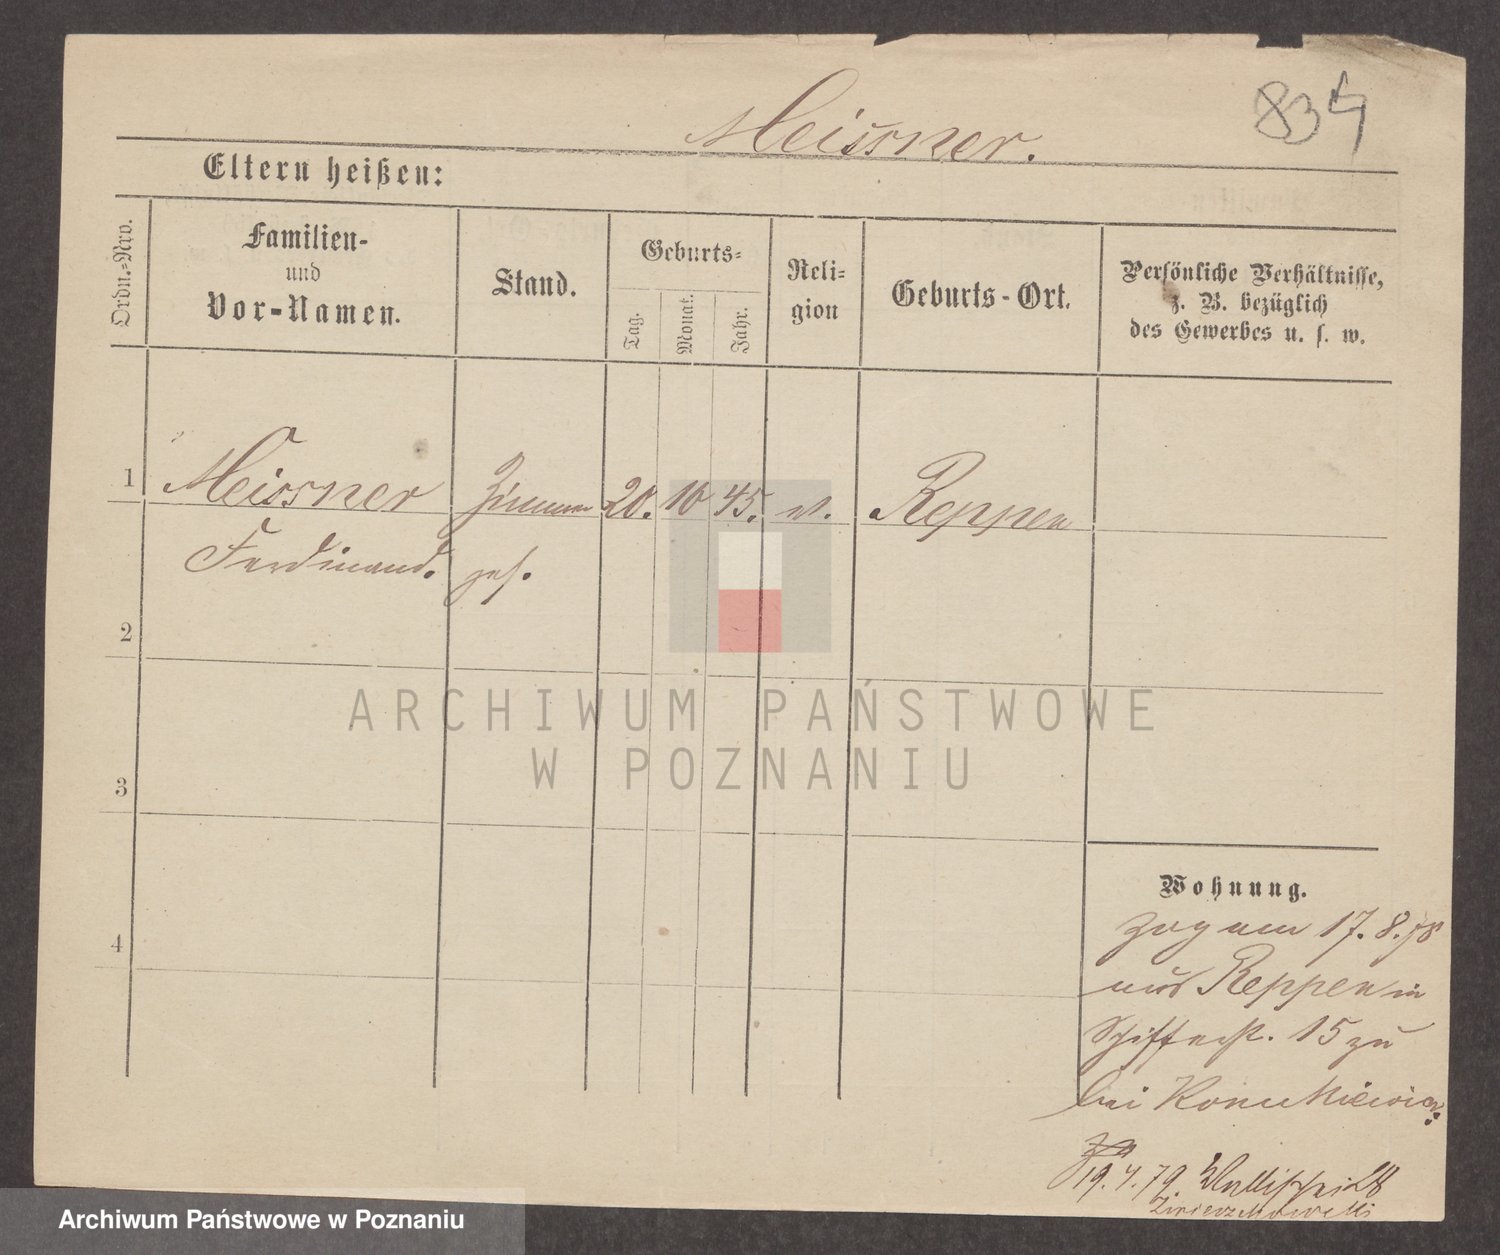 834
Meissner.
Eltern heißen:
Ordn.-Nro.
Familien-
und
Vor-Namen.
Stand.
Geburts-
Tag.
Monat.
Jahr.
Reli-
gion
Geburts-Ort.
Persönliche Verhältnisse,
z. B. bezüglich
des Gewerbes u. s. w.
1
Meissner Zimmer 20. 10 45. ev. Reppen
Ferdinand. ges.
2
ARCHIWUM PAŃSTWOWE
W POZNANIU
3
4
Wohnung.
Zog am 17.8.78
aus Reppen in
Schifferst. 15 zu
bei
19.4.79 Wallischei
Archiwum Państwowe w Poznaniu